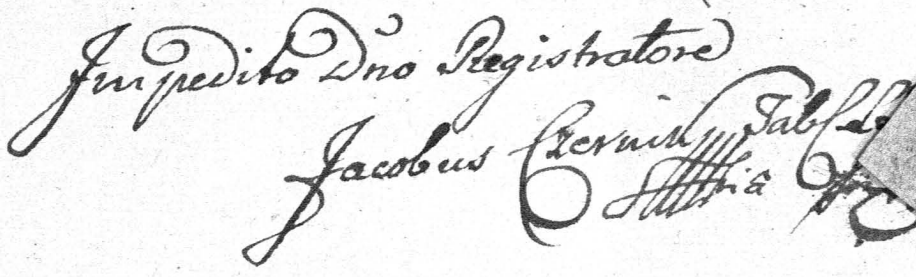 Impedito Dno Registratore
Jacobus Czernin Tab